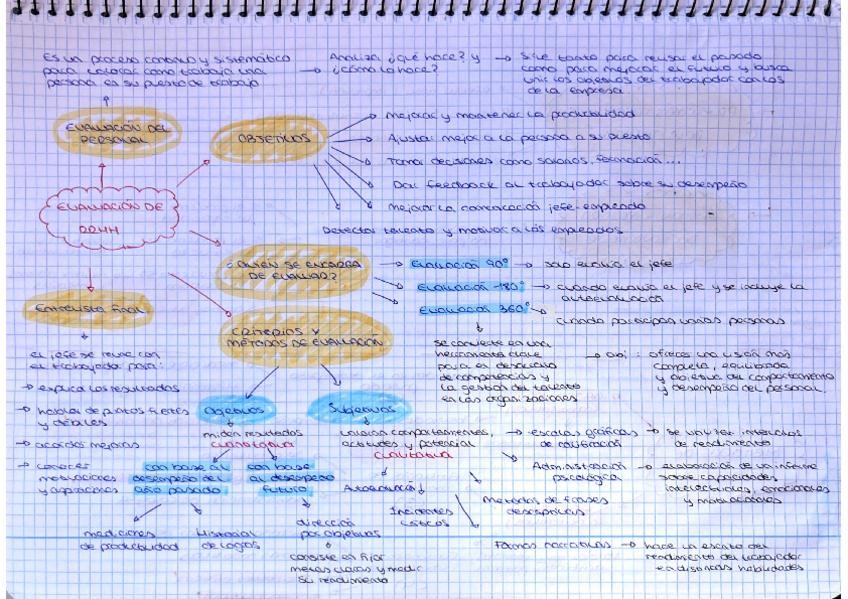 Es un proceso continuo y sistemático
para valorar como trabaja una
persona en su puesto de trabajo
Analiza ¿qué hace? y
¿cómo lo hace?
Sirve tanto para revisar el pasado
como para mejorar el futuro y busca
unir los objetivos del trabajador con los
de la empresa
EVALUACIÓN DEL
PERSONAL
OBJETIVOS
mejorar y mantener la productividad
Ajustar mejor a la persona a su puesto
Tomar decisiones como salarios, formación...
Dar feedback al trabajador sobre su desempeño
mejorar la comunicación jefe-empleado
Detectar talento y motivar a los empleados
EVALUACIÓN DE
RRHH
¿QUIÉN SE ENCARGA
DE EVALUAR?
Evaluación 90°
solo evalúa el jefe
Evaluación 180°
cuando evalúa el jefe y se incluye la
autoevaluación
Evaluación 360°
cuando participan varias personas
se convierte en una
herramienta clave
para el desarrollo
de competencias y
la gestión del talento
en las organizaciones
obj: ofrecer una visión más
completa, equilibrada
y objetiva del comportamiento
y desempeño del personal.
Entrevista final
el jefe se reúne con
el trabajador para:
explica los resultados
hablar de puntos fuertes
y débiles
acordar mejoras
conocer
motivaciones
y aspiraciones
CRITERIOS Y
MÉTODOS DE EVALUACIÓN
Objetivos
miden resultados
cuantitativa
con base al
desempeño del
año pasado
mediciones
de productividad
Historial
de logros
con base
al desempeño
futuro
dirección
por objetivos
consiste en fijar
metas claras y medir
su rendimiento
Subjetivos
valoran comportamientos,
actitudes y potencial
cualitativa
Autoevaluación
Incidentes
críticos
escalas gráficas
de calificación
se utilizan intervalos
de rendimiento
Administración
psicológica
elaboración de un informe
sobre capacidades
intelectuales, emocionales
y motivacionales
Métodos de frases
descriptivas
Formas narrativas
hace un escrito del
rendimiento del trabajador
en distintas habilidades